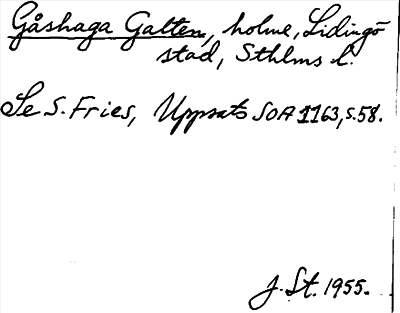 Gåshaga Galten, holme, Lidingö
stad, Sthlms l.
Se S. Fries, Uppsats SOA 1163, s. 58.
J. St. 1955.